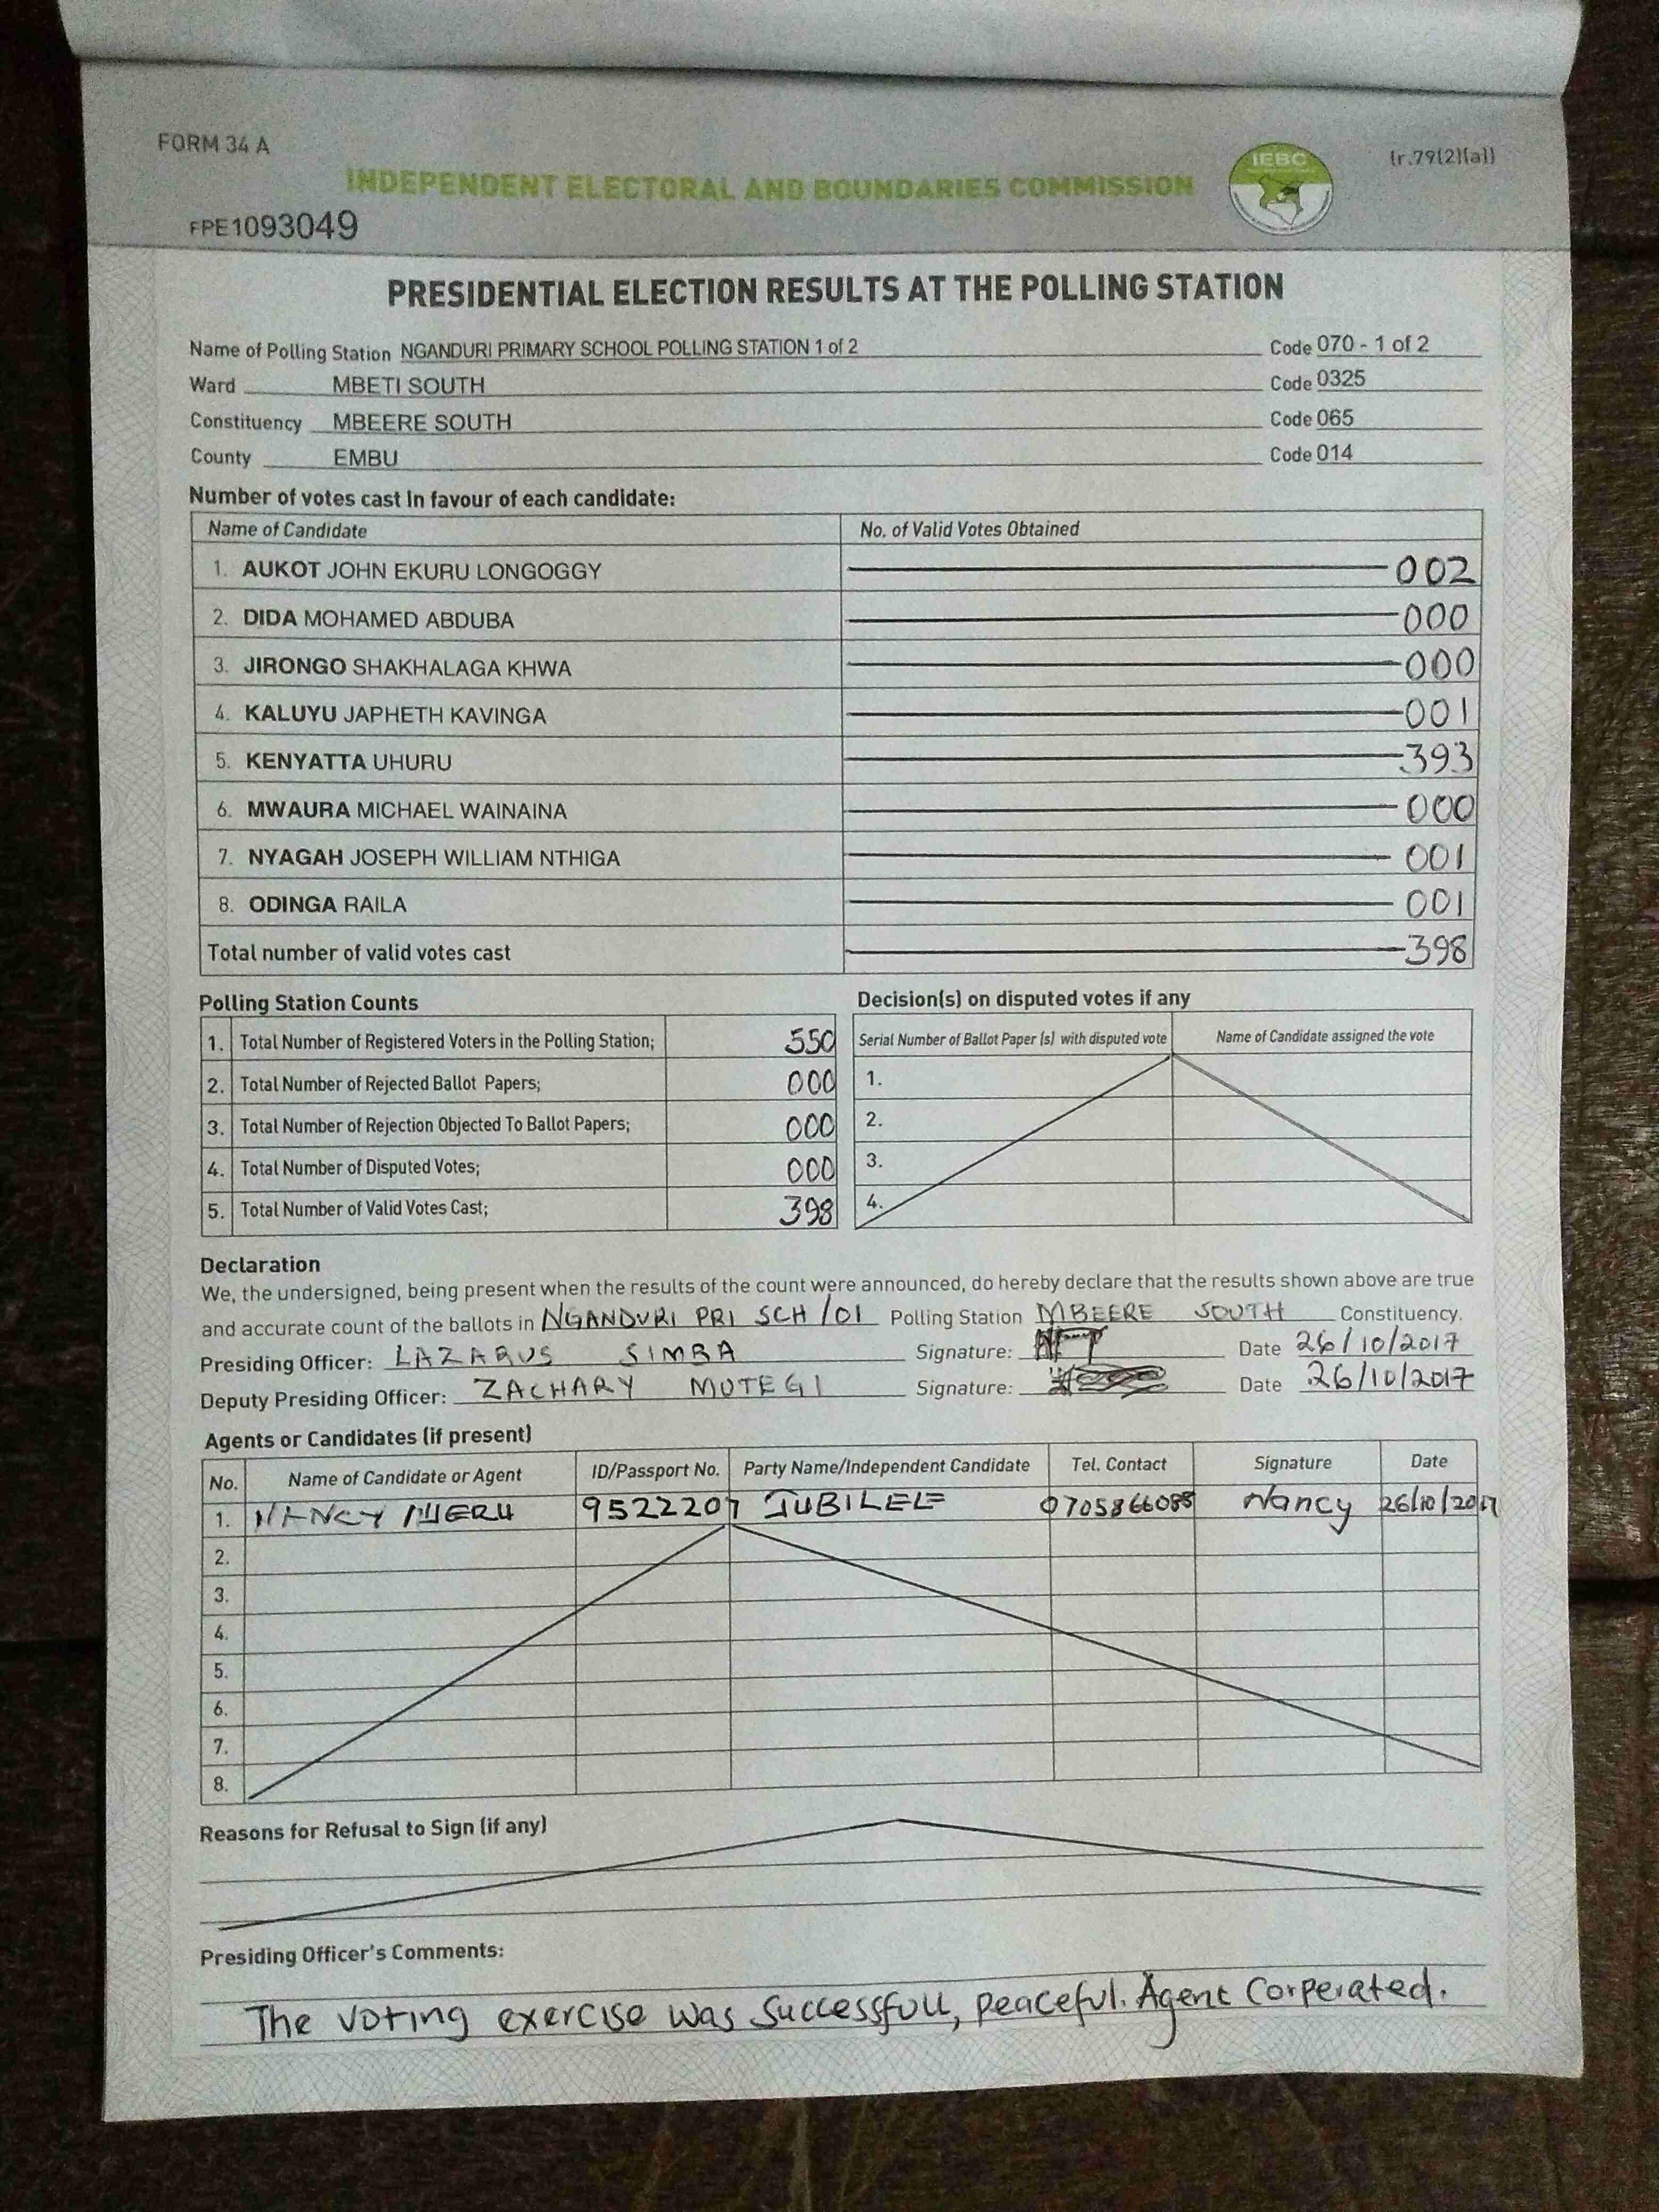 FORM 34 A
(r.79(2)(a))
IEBC
INDEPENDENT ELECTORAL AND BOUNDARIES COMMISSION
FPE1093049
PRESIDENTIAL ELECTION RESULTS AT THE POLLING STATION
Name of Polling Station NGANDURI PRIMARY SCHOOL POLLING STATION 1 of 2 Code 070 - 1 of 2
Ward MBETI SOUTH Code 0325
Constituency MBEERE SOUTH Code 065
County EMBU Code 014
Number of votes cast In favour of each candidate:
Name of Candidate No. of Valid Votes Obtained
1. AUKOT JOHN EKURU LONGOGGY 002
2. DIDA MOHAMED ABDUBA 000
3. JIRONGO SHAKHALAGA KHWA 000
4. KALUYU JAPHETH KAVINGA 001
5. KENYATTA UHURU 393
6. MWAURA MICHAEL WAINAINA 000
7. NYAGAH JOSEPH WILLIAM NTHIGA 001
8. ODINGA RAILA 001
Total number of valid votes cast 398
Polling Station Counts
1. Total Number of Registered Voters in the Polling Station; 550
2. Total Number of Rejected Ballot Papers; 000
3. Total Number of Rejection Objected To Ballot Papers; 000
4. Total Number of Disputed Votes; 000
5. Total Number of Valid Votes Cast; 398
Decision(s) on disputed votes if any
Serial Number of Ballot Paper (s) with disputed vote Name of Candidate assigned the vote
1.
2.
3.
4.
Declaration
We, the undersigned, being present when the results of the count were announced, do hereby declare that the results shown above are true
and accurate count of the ballots in NGANDURI PRI SCH /01 Polling Station MBEERE SOUTH Constituency.
Presiding Officer: LAZARUS SIMBA Signature: Date 26/10/2017
Deputy Presiding Officer: ZACHARY MUTEGI Signature: Date 26/10/2017
Agents or Candidates (if present)
No. Name of Candidate or Agent ID/Passport No. Party Name/Independent Candidate Tel. Contact Signature Date
1. NANCY 9522207 JUBILEE Nancy 26/10/2017
2.
3.
4.
5.
6.
7.
8.
Reasons for Refusal to Sign (if any)
Presiding Officer's Comments:
The voting exercise was successfull, peaceful. Agent Corperated.